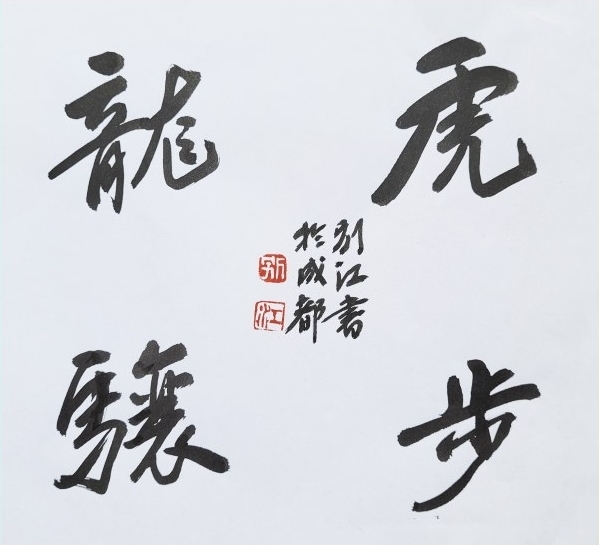 虎步
龍驤
别江書
於成都
别
江